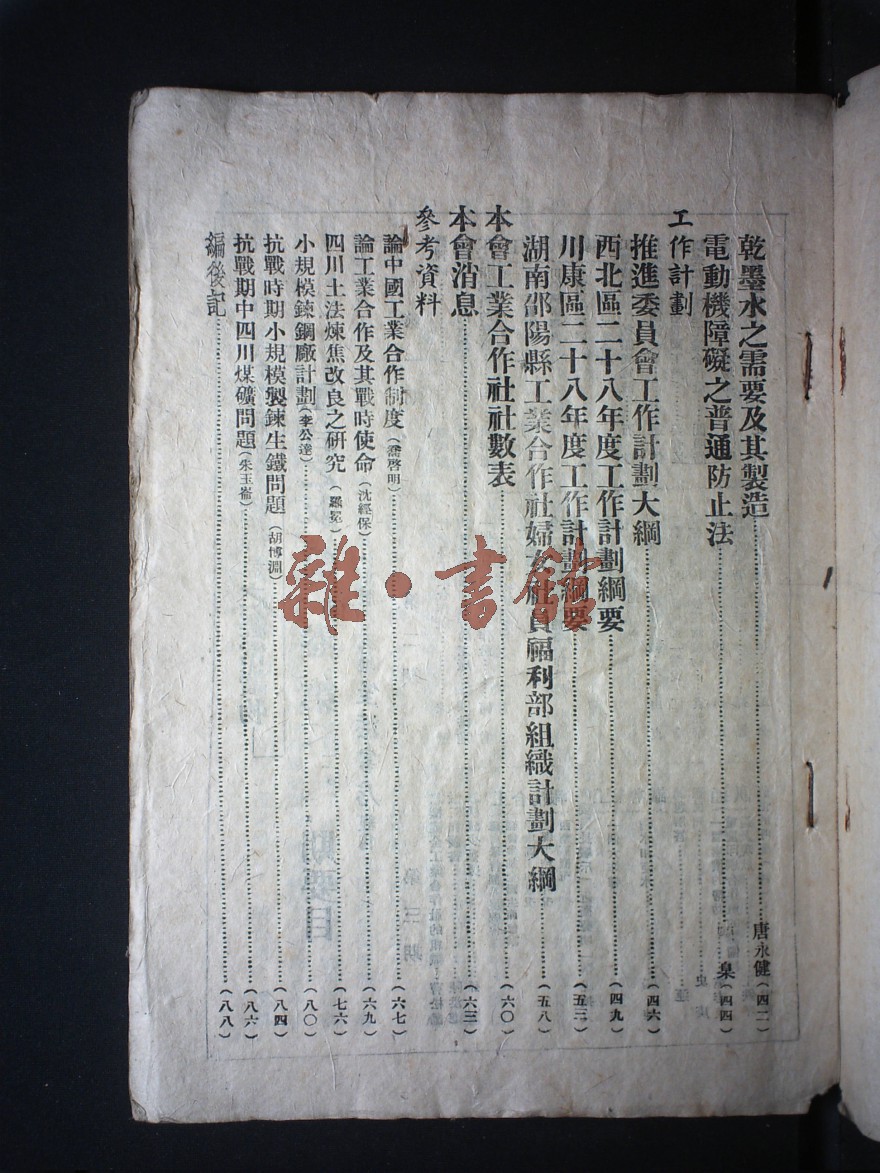 乾墨水之需要及其製造……唐永健(四二)
電動機障礙之普通防止法……臬(四四)
工作計劃
推進委員會工作計劃大綱……(四六)
西北區二十八年度工作計劃綱要……(四九)
川康區二十八年度工作計劃綱要……(五三)
湖南邵陽縣工業合作社婦女社員福利部組織計劃大綱……(五八)
本會工業合作社社數表……(六〇)
本會消息……(六三)
參考資料
論中國工業合作制度(喬啓明)……(六七)
論工業合作及其戰時使命(沈經保)……(六九)
四川土法煉焦改良之研究(羅冕)……(七六)
小規模鍊鋼廠計劃(李公達)……(八〇)
抗戰時期小規模製鍊生鐵問題(胡博淵)……(八四)
抗戰期中四川煤礦問題(朱玉崙)……(八六)
編後記……(八八)
雜·書館